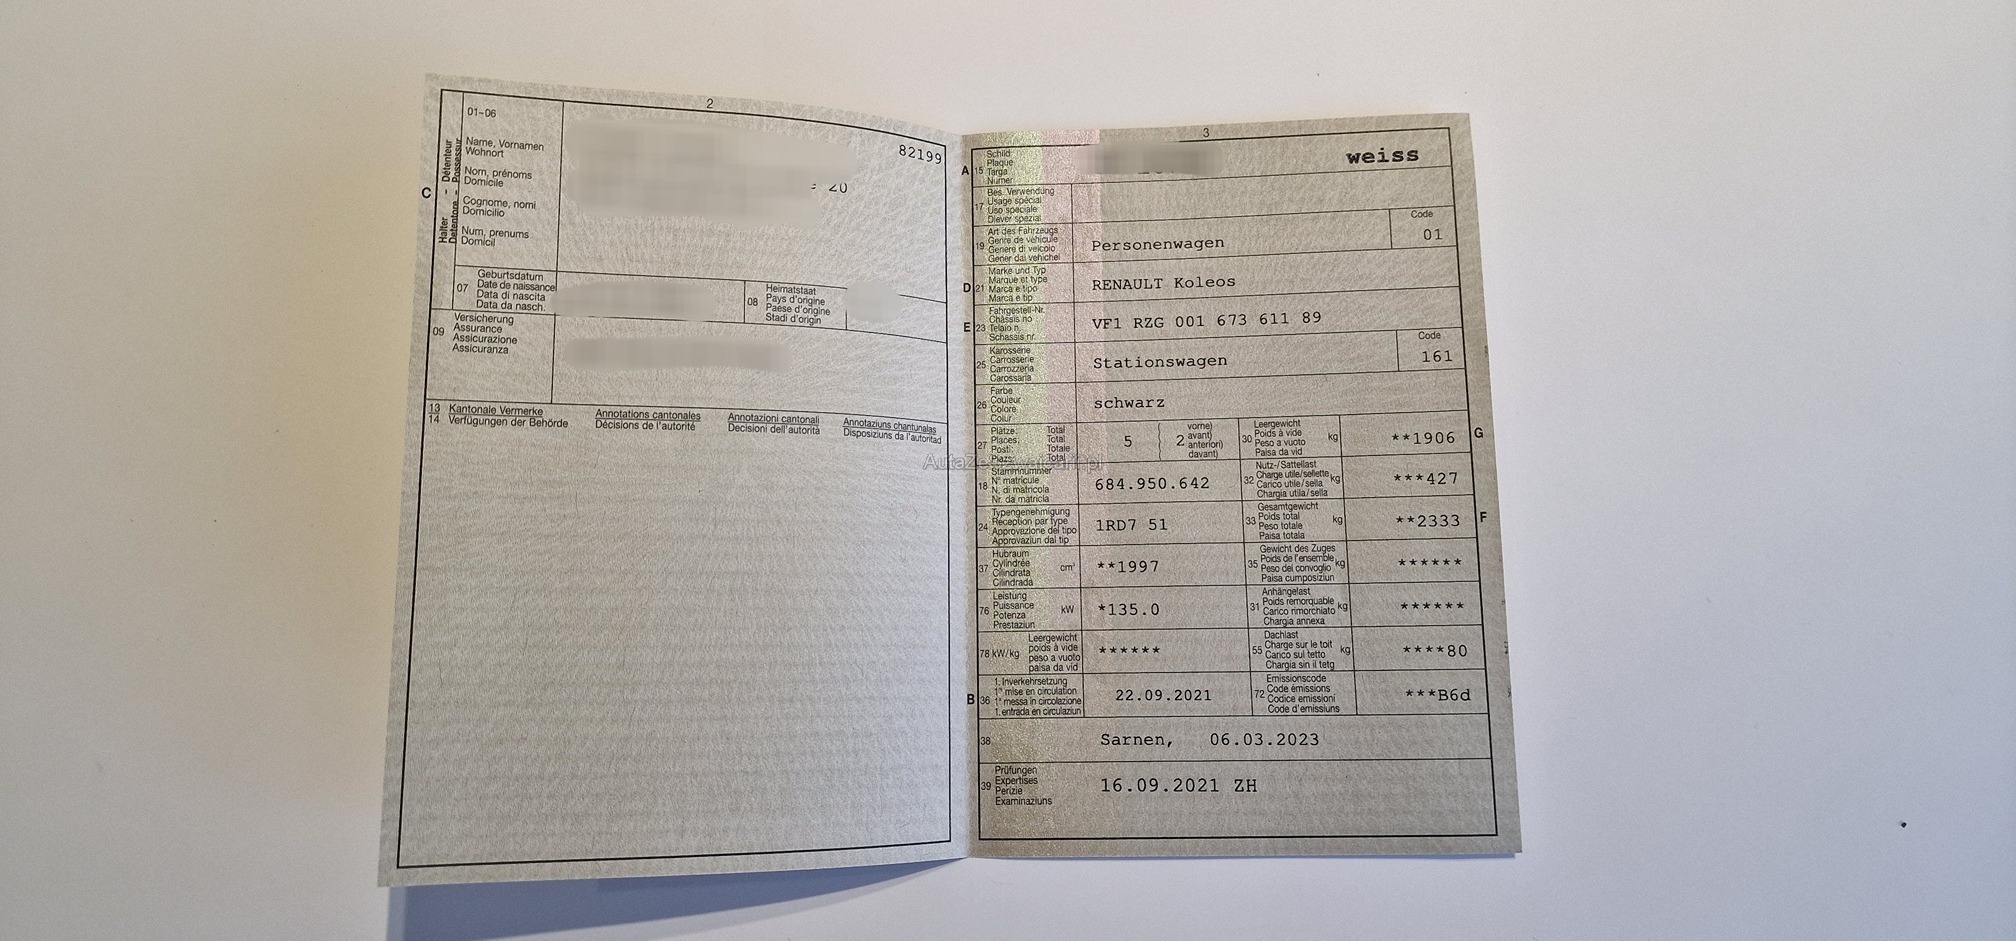 2
01-06
82199
Halter - Détenteur
Detentore - Possessur
C
Name, Vornamen
Wohnort
Nom, prénoms
Domicile
Cognome, nomi
Domicilio
Num, prenums
Domicil
20
07
Geburtsdatum
Date de naissance
Data di nascita
Data da nasch.
08
Heimatstaat
Pays d'origine
Paese d'origine
Stadi d'origin
09
Versicherung
Assurance
Assicurazione
Assicuranza
13 Kantonale Vermerke Annotations cantonales Annotazioni cantonali Annotaziuns chantunalas
14 Verfügungen der Behörde Décisions de l'autorité Decisioni dell'autorità Disposiziuns da l'autoritad
3
A 15
Schild
Plaque
Targa
Numer
weiss
17
Bes. Verwendung
Usage spécial
Uso speciale
Diever spezial
19
Art des Fahrzeugs
Genre de véhicule
Genere di veicolo
Gener dal vehichel
Personenwagen
Code
01
D 21
Marke und Typ
Marque et type
Marca e tipo
Marca e tip
RENAULT Koleos
E 23
Fahrgestell-Nr.
Châssis no
Telaio n.
Schassis nr.
VF1 RZG 001 673 611 89
25
Karosserie
Carrosserie
Carrozzeria
Carossaria
Stationswagen
Code
161
26
Farbe
Couleur
Colore
Colur
schwarz
27
Plätze: Total
Places: Total
Posti: Totale
Plazs: Total
5
2
vorne)
avant)
anteriori)
davant)
30
Leergewicht
Poids à vide
Peso a vuoto
Paisa da vid
kg
**1906
G
18
Stammnummer
N° matricule
N. di matricola
Nr. da matricla
684.950.642
32
Nutz-/Sattellast
Charge utile/sellette
Carico utile/sella
Chargia utila/sella
kg
***427
24
Typengenehmigung
Réception par type
Approvazione del tipo
Approvaziun dal tip
1RD7 51
33
Gesamtgewicht
Poids total
Peso totale
Paisa totala
kg
**2333
F
37
Hubraum
Cylindrée
Cilindrata
Cilindrada
cm³
**1997
35
Gewicht des Zuges
Poids de l'ensemble
Peso del convoglio
Paisa cumposiziun
kg
******
76
Leistung
Puissance
Potenza
Prestaziun
kW
*135.0
31
Anhängelast
Poids remorquable
Carico rimorchiato
Chargia annexa
kg
******
78 kW/kg
Leergewicht
poids à vide
peso a vuoto
paisa da vid
******
55
Dachlast
Charge sur le toit
Carico sul tetto
Chargia sin il tetg
kg
****80
B 36
1. Inverkehrsetzung
1re mise en circulation
1a messa in circolazione
1. entrada en circulaziun
22.09.2021
72
Emissionscode
Code émissions
Codice emissioni
Code d'emissiuns
***B6d
38
Sarnen, 06.03.2023
39
Prüfungen
Expertises
Perizie
Examinaziuns
16.09.2021 ZH